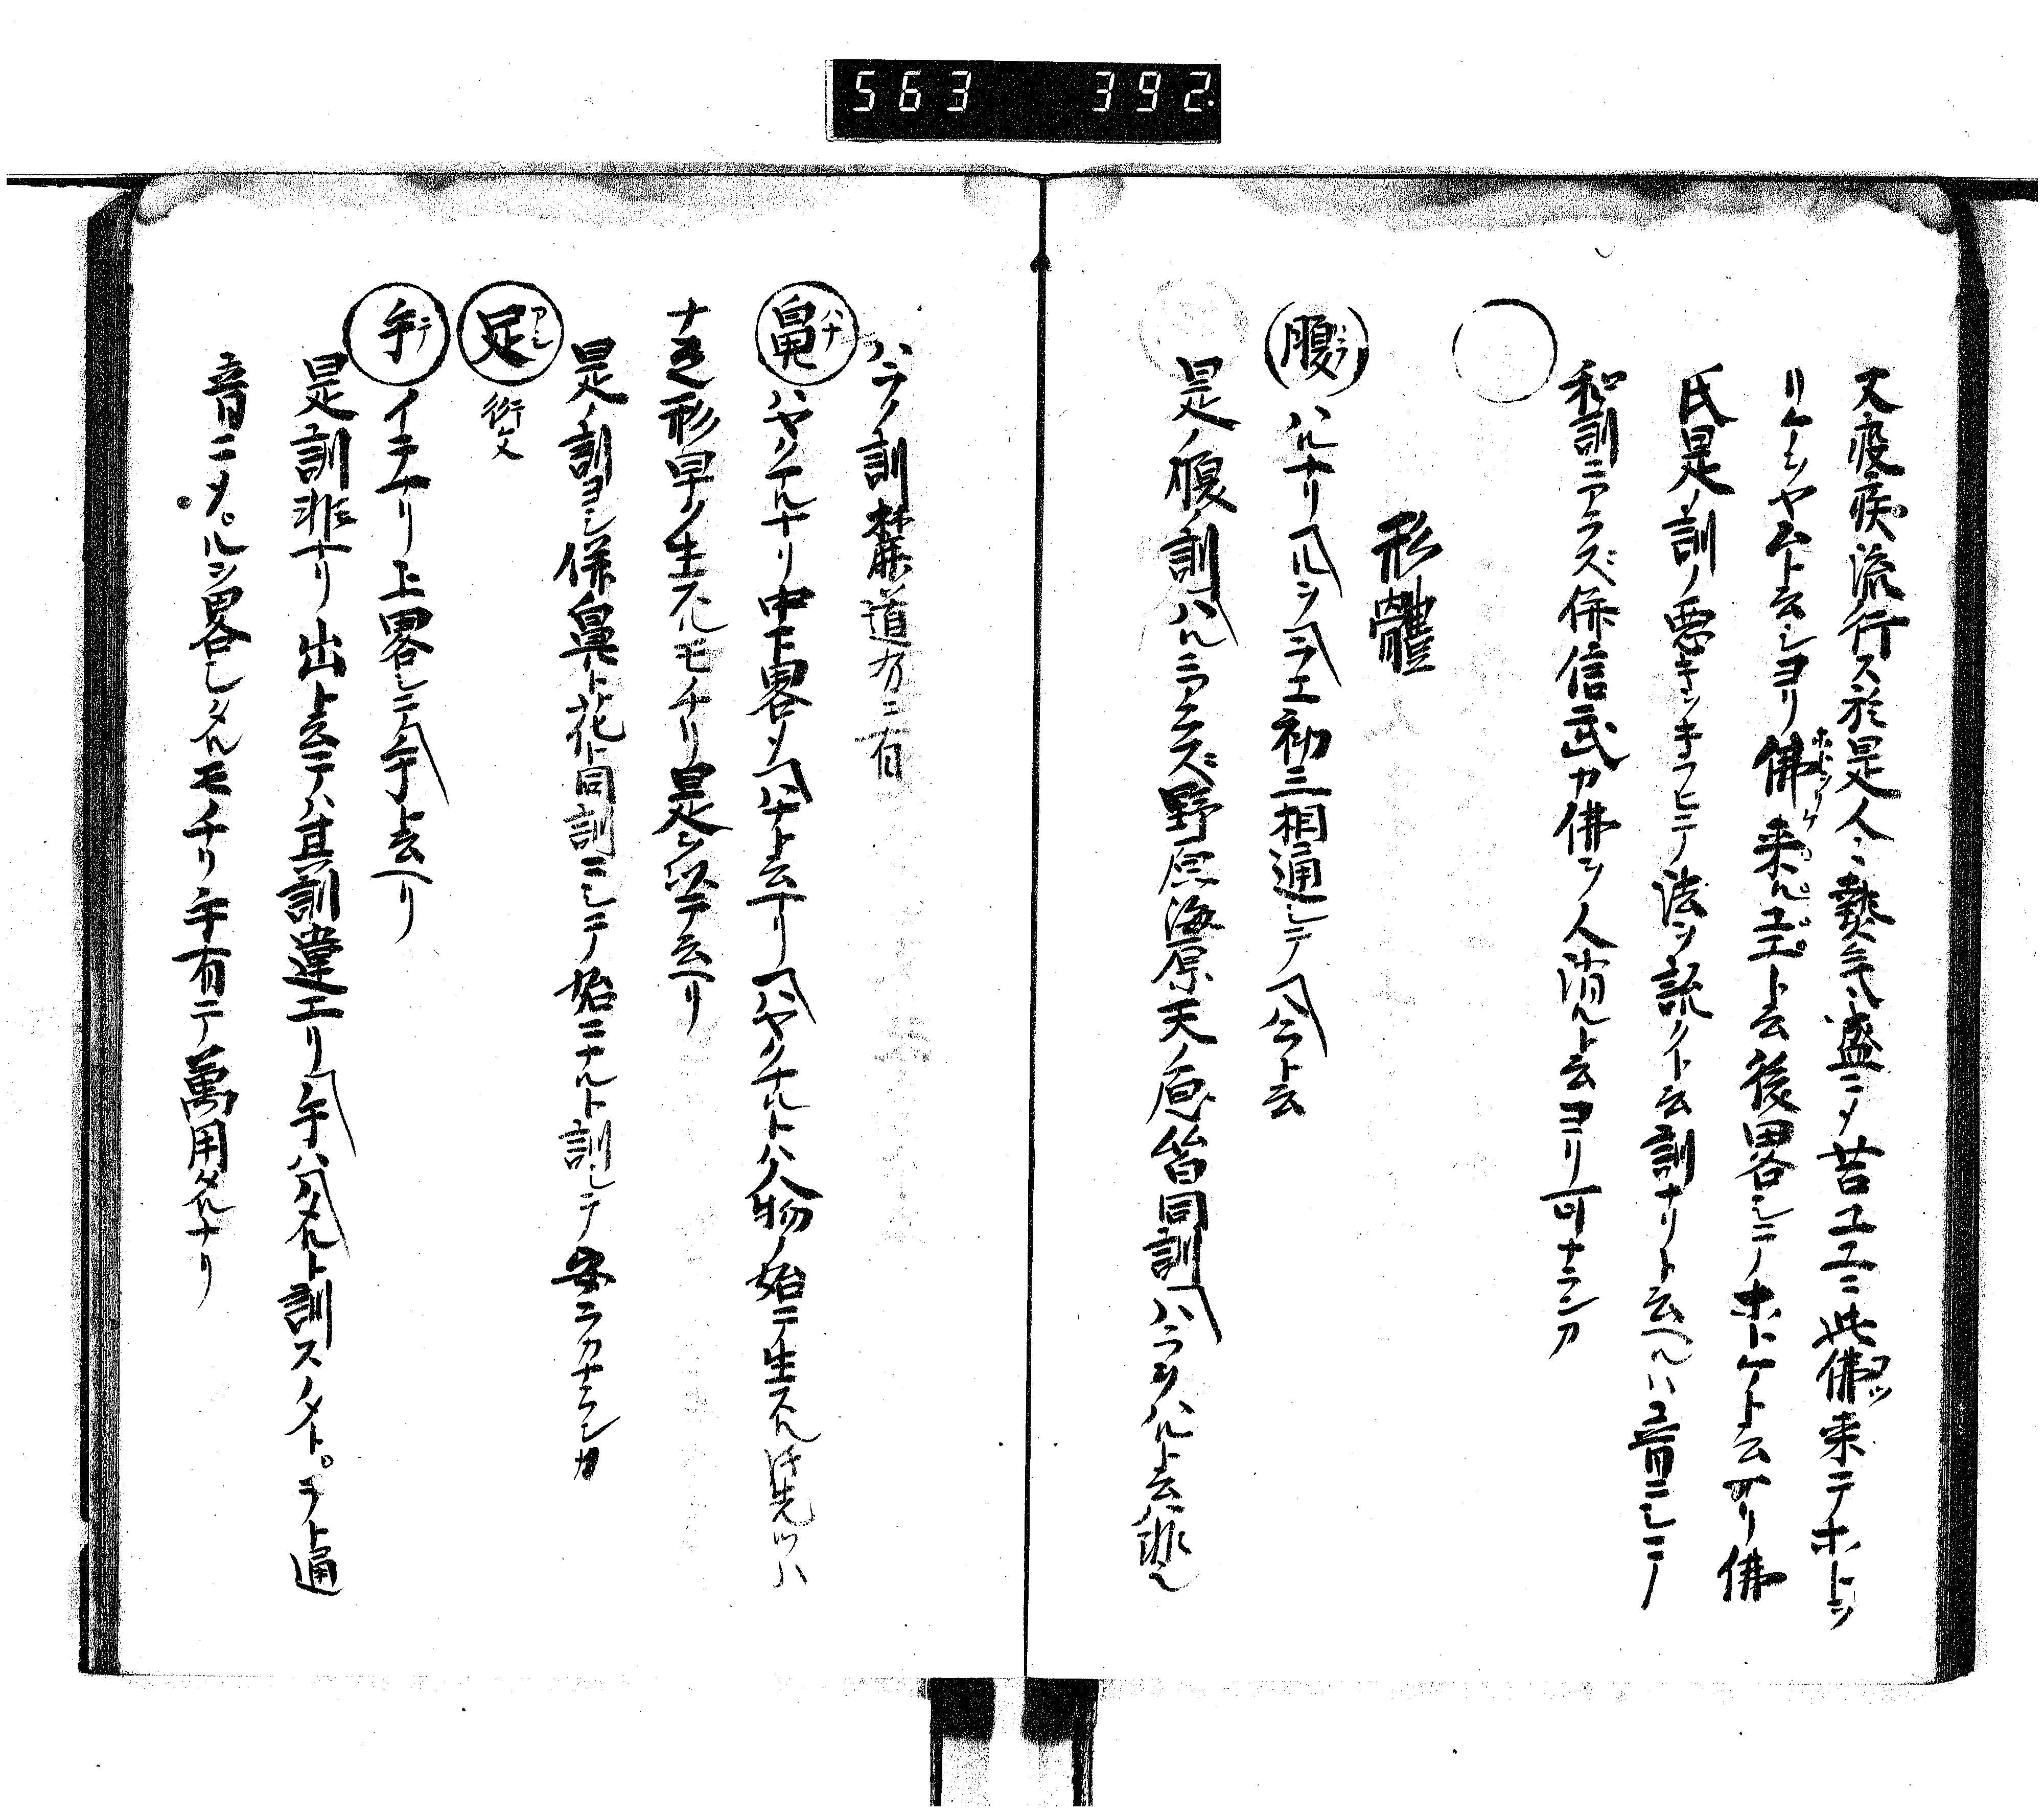 563 392.
又疫疾流行ス於是人ミ熱気盛ニメ苦ユエニ此佛来テホトヲ
リケシヤムト云シヨリ佛来ルユエト云後畧シテホトケト云ナリ佛
氏是ノ訓ノ悪キヲキラヒテ法ヲ説クト云訓ナリト云ヘルハ音ニシテ
和訓ニアラズ併信武カ佛ヲ人消ルト云ヨリ可ナランカ
形體
腹 ハラ ハルナリルヲラエ初三相通シテハラト云
是ノ腹ノ訓ハルニアラズ野原海原天ノ原皆同訓ハラヲハルト云ハ非也
ハラノ訓 道ノ方ニ有
鼻 ハナ ハヤクナルナリ中下畧メハナト云ナリハヤクナルトハ人物ノ始ニテ生スル時先ツハ
ナノ形早ク生スルモノナリ是ヲ以テ云ヘリ
是ノ訓ヨシ併鼻ト花ト同訓ニシテ始ニナルト訓シテ安ニカナランカ
足 アシ 衍文
手 テ イテナリ上畧シテ手ト云ヘリ
是訓非ナリ出ト云テハ其訓違エリ手ハタルト訓スタトテト通
音ニメルヲ畧シタルモノナリ手有テ萬用タルナリ